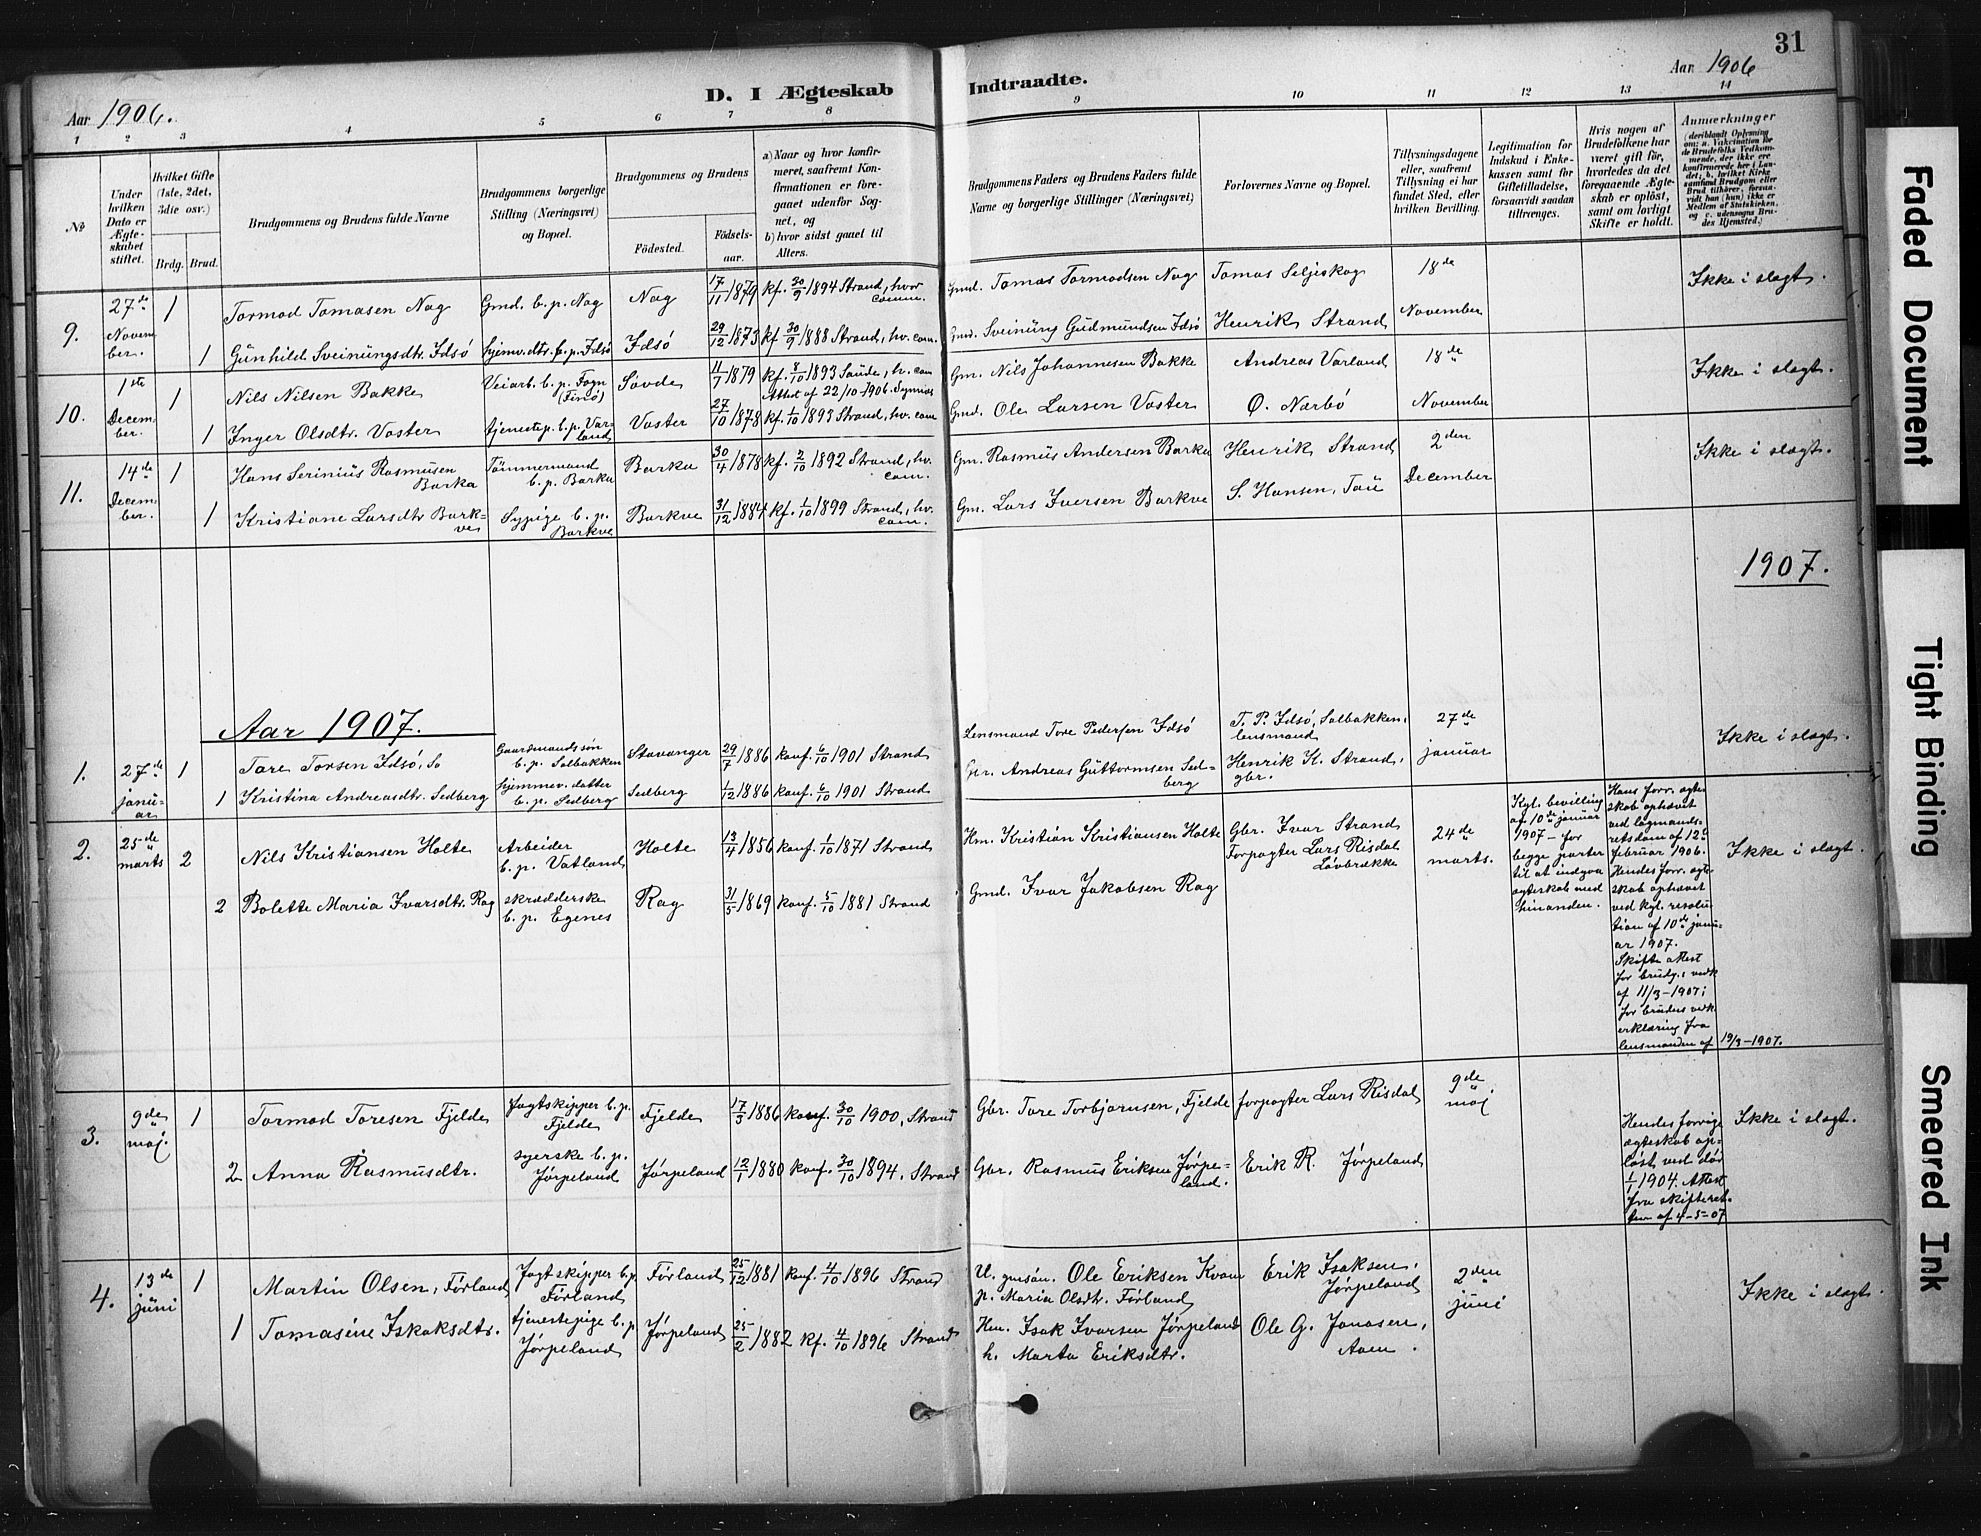 31
Aar 1906.
D. I Ægteskab
Indtraadte.
Aar 1906
1 2 3 4 5 6 7 8 9 10 11 12 13 14
№
Under hvilken Dato er Ægteskabet stiftet.
Hvilket Gifte (1ste, 2det, 3die osv.)
Brdg. Brud.
Brudgommens og Brudens fulde Navne
Brudgommens borgerlige Stilling (Næringsvei) og Bopæl.
Brudgommens og Brudens
Födested.
Födsels-aar.
a) Naar og hvor konfirmeret, saafremt Konfirmationen er foregaaet udenfor Sognet, og
b) hvor sidst gaaet til Alters.
Brudgommens Faders og Brudens Faders fulde Navne og borgerlige Stillinger (Næringsvei)
Forlovernes Navne og Bopæl.
Tillysningsdagene eller, saafremt Tillysning ei har fundet Sted, efter hvilken Bevilling.
Legitimation for Indskud i Enkekassen samt for Giftetilladelse, forsaavidt saadan tiltrænges.
Hvis nogen af Brudefolkene har været gift för, hvorledes da det foregaaende Ægteskab er oplöst, samt om lovligt Skifte er holdt.
Anmærkninger
(deriblandt Oplysning om: a. Vakcination for de Brudefolks Vedkommende, der ikke ere konfirmerede her i Landet, b. hvilket Kirkesamfund Brudgom eller Brud tilhörer, forsaavidt han (hun) ikke er Medlem af Statskirken, og c. udensogns Brudes Hjemsted.)
9. 27de November. 1 Tormod Tomasen Nag Gmd. b. p. Nag Nag 17/11 1879 kf. 30/9 1894 Strand, hvor comm. Gmd. Tomas Tormodsen Nag Tomas Seljeskog 18de November Ikke i slægt.
1 Gunhild Sveinungsdtr. Idsø hjemv. dtr. b. p. Idsø Idsø 29/12 1873 kf 30/9 1888 Strand, hv. com. Gmd. Sveinung Gudmundsen Idsø Henrik Strand
10. 1ste December. 1 Nils Nilsen Bakke Veiarb. b. p. Fogn (Finsø) Søvde 11/7 1879 kf. 8/10 1893 Saude, h. com Attest af 22/10-1906. Gm. Nils Johannesen Bakke Andreas Varland 18de November Ikke i slægt.
1 Inger Olsdtr. Voster tjenestep. b. p. Varland Voster 27/10 1878 kf. 1/10 1893 Strand, hv. com Gmd. Ole Larsen Voster Ø. Nærbö
11. 14de December. 1 Hans Serinius Rasmusen Barka Tömmermand b. p. Barka Barka 30/4 1878 kf. 2/10 1892 Strand, hv. com. Gm. Rasmus Andersen Barka Henrik Strand 2den December Ikke i slægt.
1 Kristiane Larsdtr Barkve Sypige b. p. Barkve Barkve 31/12 1884 kf. 1/10 1899 Strand, hv. com. Gm. Lars Iversen Barkve S. Hansen, Tau
1907.
Aar 1907.
1. 27de januar 1 Tore Torsen Idsø, S. Gaardmandssön b. p. Solbakken Stavanger 29/7 1886 konf. 6/10 1901 Strand Lensmand Tore Pedersen Idsø T. P. Idsø, Solbakken, lensmand 27de januar Ikke i slægt.
1 Kristina Andreasdtr. Sedberg hjemmev. datter b. p. Sedberg Sedberg 1/12 1886 konf. 6/10 1901 Strand Gbr. Andreas Guttormsen Sedberg Henrik H. Strand, gbr.
2. 25de marts 2 Nils Kristiansen Holte Arbeider b. p. Vatland Holte 13/4 1856 konf. 1/10 1871 Strand Hm. Kristian Kristiansen Holte Gbr. Ivar Strand 24de marts. Ikke i slægt.
2 Bolette Maria Ivarsdtr. Rag skrædderske b. p. Egenes Rag 31/5 1869 konf. 5/10 1881 Strand Gmd. Ivar Jakobsen Rag Forpagter Lars Risdal Løvbrække
Kgl. bevilling af 10de januar 1907 – for begge parter til at indgaa ægteskab med hinanden.
Hans forr. ægteskab ophævet ved lagmandsretsdom af 12. februar 1906. Hendes forr. ægteskab ophævet ved kgl. resolution af 10de januar 1907. Skifte attest for brudg.s vedk af 11/3-1907; for brudens vedk. erklæring fra lensmanden af 19/3-1907.
3. 9de maj. 1 Tormod Toresen Fjelde Jagtskipper b. p. Fjelde Fjelde 17/3 1886 konf. 30/10 1900, Strand Gbr. Tore Torbjørnsen, Fjelde forpagter Lars Risdal 9de maj Ikke i slægt.
2 Anna Rasmusdtr. syerske b. p. Jørpeland Jørpeland 12/1 1880 konf. 30/10 1894. Strand Gbr. Rasmus Eriksen Jørpeland. Erik R. Jørpeland
Hendes forrige ægteskab opløst ved død 1/1 1904. Attest fra skifteretten af 4-5-07
4. 13de juni 1 Martin Olsen, Førland Jagtskipper b. p. Førland Førland 25/12 1881 konf. 4/10 1896 Strand U. gmsön. Ole Eriksen Kvam p. Maria Olsdtr. Førland Erik Isaksen, Jørpeland 2den juni Ikke i slægt.
1 Tomasine Iskaksdtr. tjenestepige b. p. Jørpeland Jørpeland 25/2 1882 kf. 4/10 1896 Strand Hm. Isak Ivarsen Jørpeland h. Marta Eriksdtr. Ole G. Jonasen,
Faded Document
Tight Binding
Smeared Ink